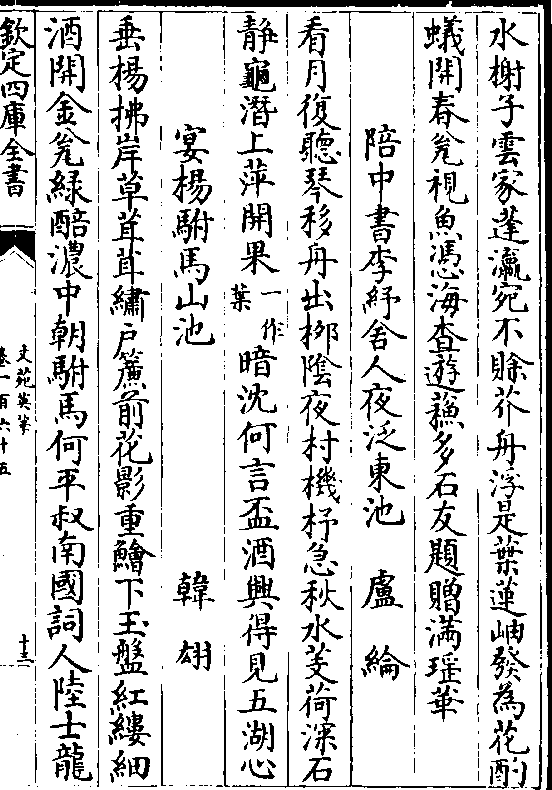 水榭子雲家蓬瀛宛不賒芥舟浮是葉蓮岫發為花酌
蟻開春瓮視魚憑海查遊蘓多石友題贈滿瑶華
陪中書李紓舍人夜泛東池 盧綸
看月復聽琴移舟出栁陰夜村機杼急秋水芰荷深石
靜龜潛上萍開果一作葉暗沈何言盃酒興得見五湖心
宴楊駙馬山池 韓翃
垂楊拂岸草茸茸繡戶簾前花影重鱠下玉盤紅縷細
酒開金瓮綠醅濃中朝駙馬何平叔南國詞人陸士龍
欽定四庫全書
文苑英華
卷一百六十五
十三